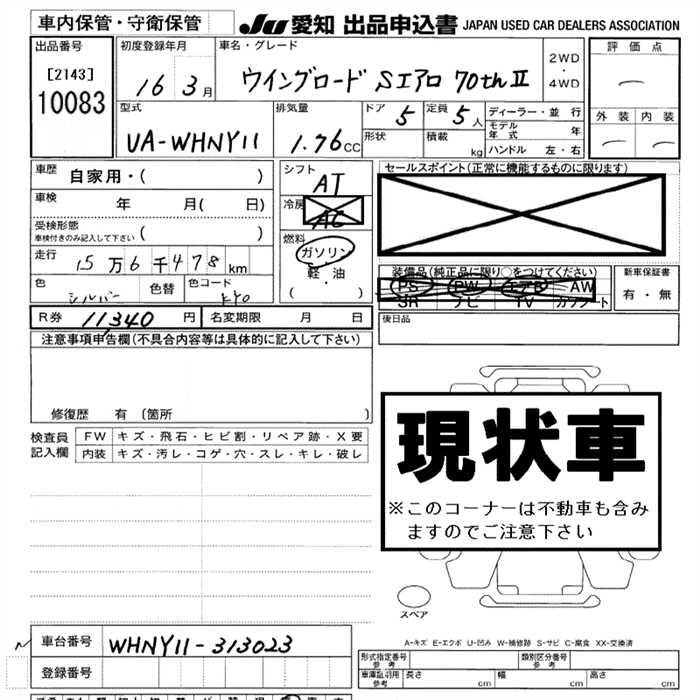 車内保管・守衛保管
JU 愛知 出品申込書 JAPAN USED CAR DEALERS ASSOCIATION
出品番号
[2143]
10083
初度登録年月
16 3月
車名・グレード
ウイングロード Sエアロ 70th II
2WD
・
4WD
評価点
外装 内装
型式
UA-WHNY11
排気量
1.76 CC
ドア 5
形状
定員 5人
積載 kg
ディーラー・並行
モデル年式 年
ハンドル 左・右
車歴 自家用・( )
車検 年 月( 日)
受検形態
車検付きのみ記入して下さい ( )
走行 15万6千478km
色 シルバー 色替 色コード KY0
シフト AT
冷房 AC
燃料
ガソリン
軽・油
( )
セールスポイント(正常に機能するものに限ります)
装備品(純正品に限り○をつけてください)
PS PW エアB AW
SR ナビ TV カワシート
新車保証書
有・無
R券 11,340 円 名変期限 月 日
後日品
注意事項申告欄(不具合内容等は具体的に記入して下さい)
修復歴 有〔箇所 〕
検査員
記入欄
FW キズ・飛石・ヒビ割・リペア跡・X要
内装 キズ・汚レ・コゲ・穴・スレ・キレ・破レ
現状車
※このコーナーは不動車も含み
ますのでご注意下さい
スペア
A-キズ E-エクボ U-凹み W-補修跡 S-サビ C-腐食 XX-交換済
車台番号 WHNY11-313023
登録番号
形式指定番号
参考
類別区分番号
参考
車庫証明用
参考
長さ cm 幅 cm 高さ cm